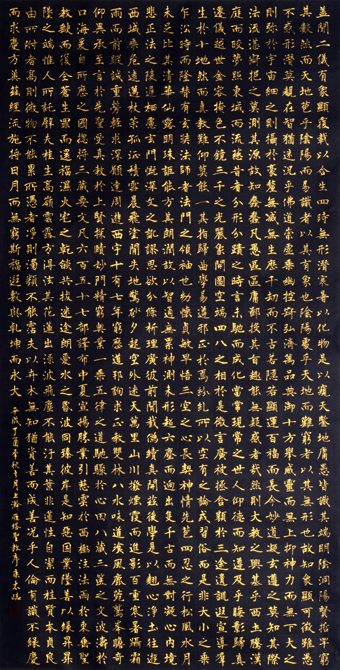 蓋聞二儀有象顯覆載以含生四時無形潛寒暑以化物是以窺天鑒地庸愚皆識其端明陰洞陽賢哲罕窮
其數然而天地苞乎陰陽而易識者以其有象也陰陽處乎天地而難窮者以其無形也故知象顯可徵雖愚
不惑形潛莫覩在智猶迷況乎佛道崇虛乘幽控寂弘濟萬品典御十方舉威靈而無上抑神力而無下大之
則彌於宇宙細之則攝於豪釐無滅無生歷千劫而不古若隱若顯運百福而長今妙道凝玄遵之莫知其際
法流湛寂挹之莫測其源故知蠢蠢凡愚區區庸鄙投其旨趣能無疑惑者哉然則大教之興基乎西土騰漢
庭而皎夢照東域而流慈昔者分形分跡之時言未馳而成化當常現常之世人仰德而知遵及乎晦影歸真
遷儀越世金容掩色不鏡三千之光麗象開圖空端四八之相於是微言廣被拯含類於三途遺訓遐宣導群
生於十地然而真教難仰莫能一其指歸曲學易遵邪正於焉紛糺所以空有之論或習俗而是非大小之乘
乍沿時而隆替有玄奘法師者法門之領袖也幼懷貞敏早悟三空之心長契神情先苞四忍之行松風水月
未足比其清華仙露明珠詎能方其朗潤故以智通無累神測未形超六塵而迥出隻千古而無對凝心內境
悲正法之陵遲栖慮玄門慨深文之訛謬思欲分條析理廣彼前聞截偽續真開茲後學是以翹心淨土往遊
西域乘危遠邁杖策孤征積雪晨飛塗間失地驚砂夕起空外迷天萬里山川撥煙霞而進影百重寒暑躡霜
雨而前蹤誠重勞輕求深願達周遊西宇十有七年窮歷道邦詢求正教雙林八水味道飡風鹿苑鷲峯瞻奇
仰異承至言於先聖受真教於上賢探賾妙門精窮奧業一乘五律之道馳驟於心田八藏三篋之文波濤於
口海爰自所歷之國總將三藏要文凡六百五十七部譯布中夏宣揚勝業引慈雲於西極注法雨於東垂聖
教缺而復全蒼生罪而還福濕火宅之乾燄共拔迷途朗愛水之昏波同臻彼岸是知惡因業墜善以緣昇昇
墜之端惟人所託譬夫桂生高嶺零露方得泫其花蓮出淥波飛塵不能汙其葉非蓮性自潔而桂質本貞良
由所附者高則微物不能累所憑者淨則濁類不能霑夫以卉木無知猶資善而成善況乎人倫有識不緣慶
而求慶方冀茲經流施將日月而無窮斯福遐敷與乾坤而永大